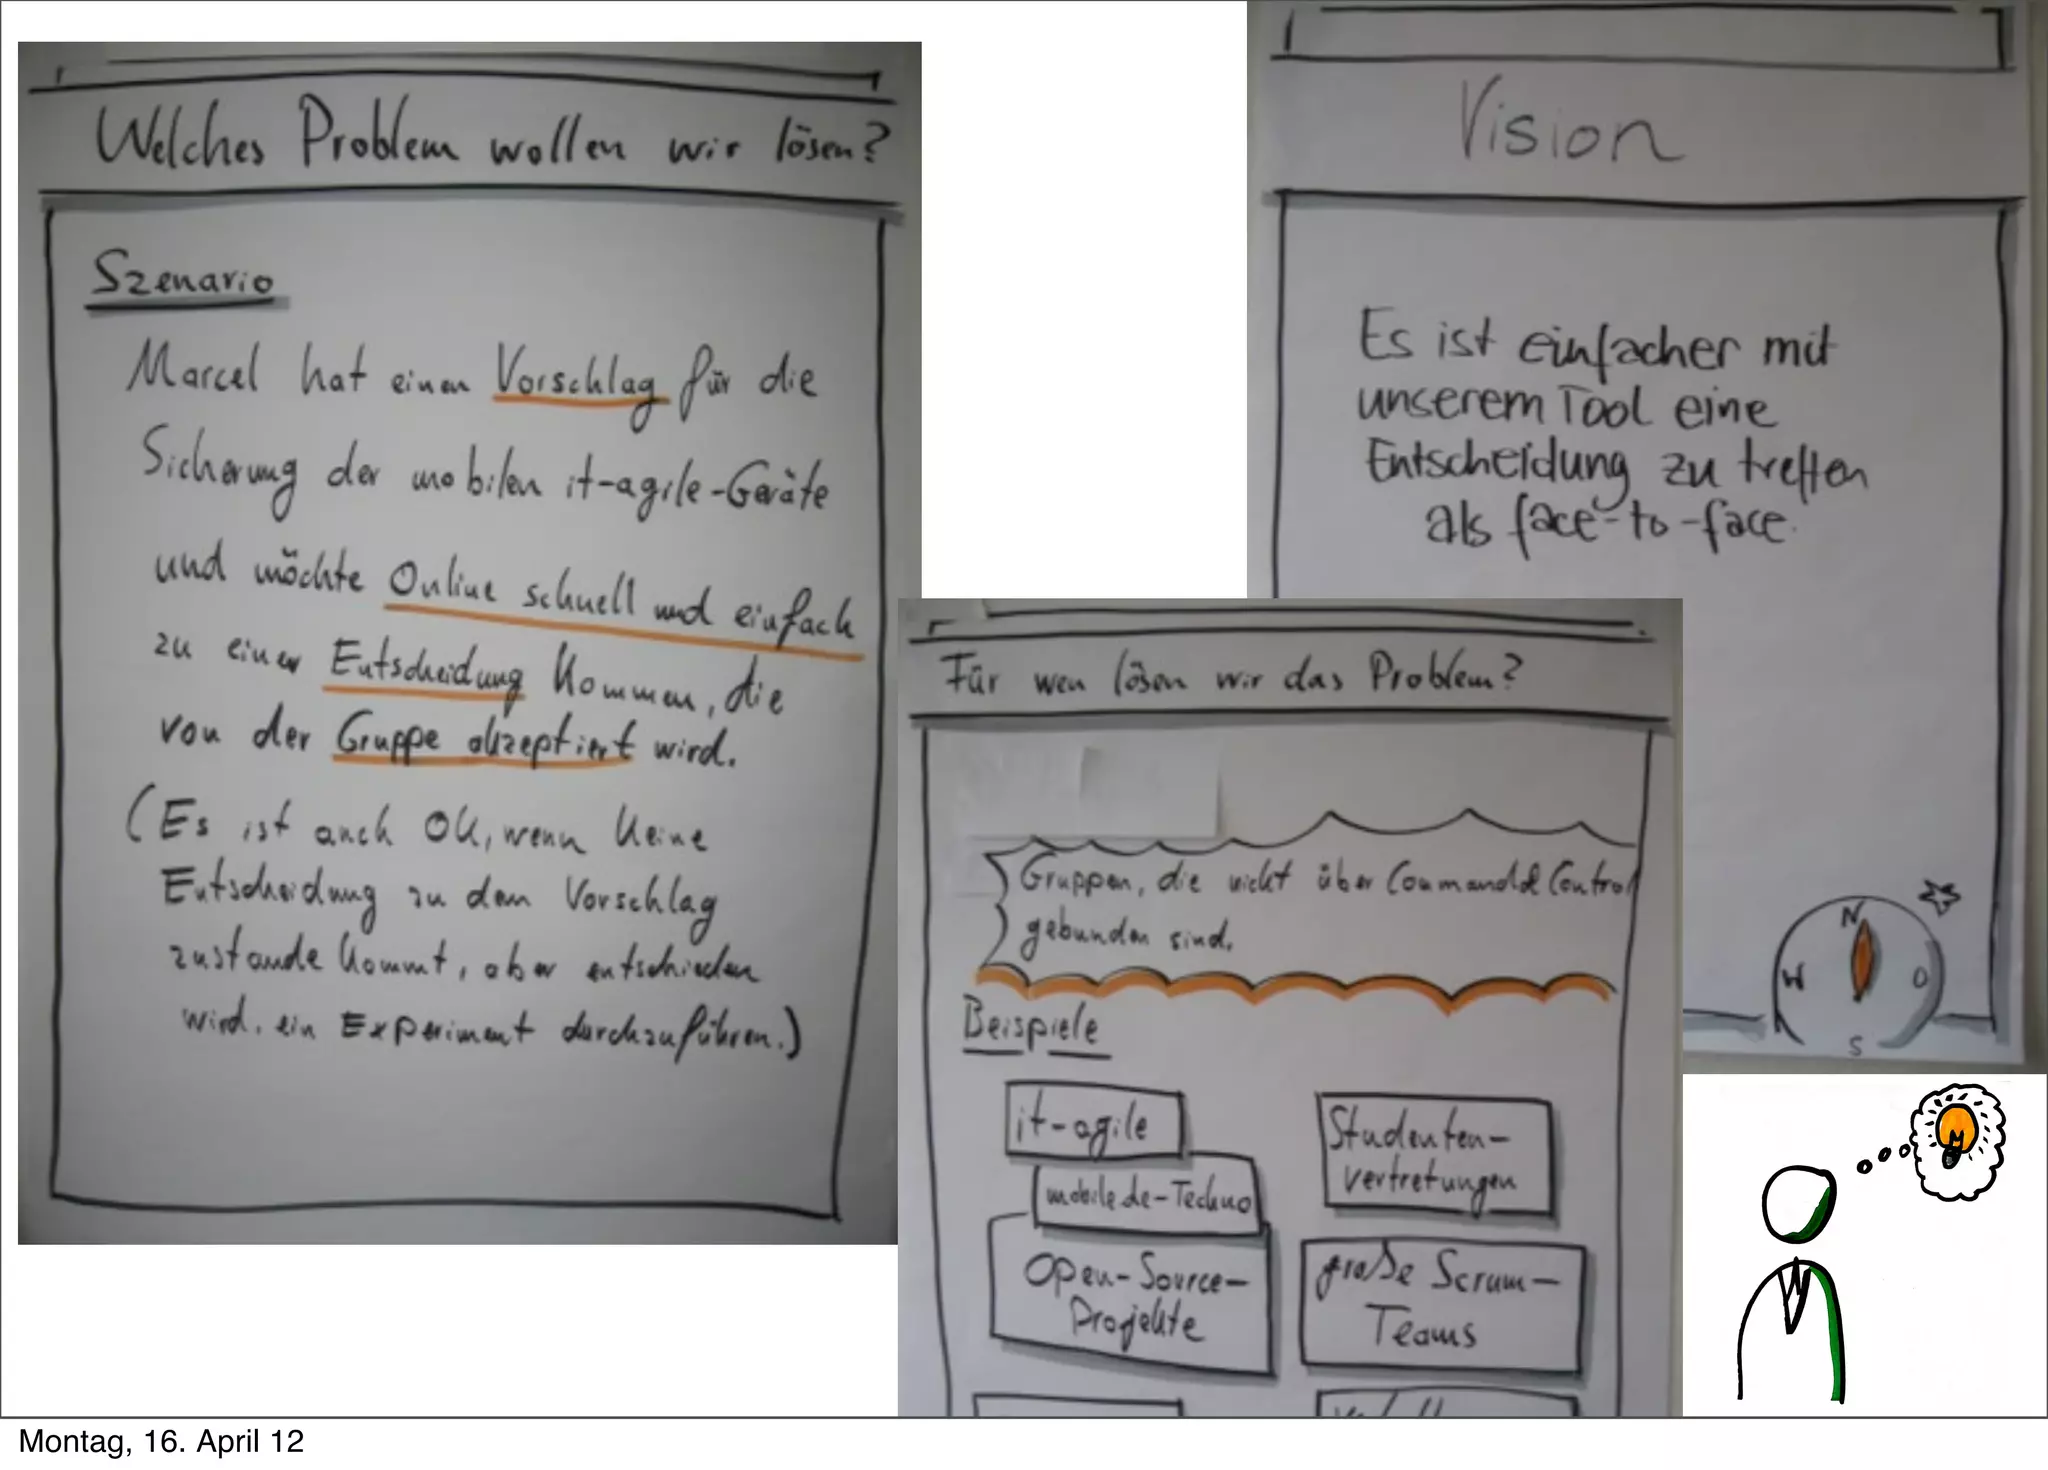 Welches Problem wollen wir lösen?
Szenario
Marcel hat einen Vorschlag für die
Sicherung der mobilen it-agile-Geräte
und möchte Online schnell und einfach
zu einer Entscheidung kommen, die
von der Gruppe akzeptiert wird.
(Es ist auch OK, wenn keine
Entscheidung zu dem Vorschlag
zustande kommt, aber entschieden
wird, ein Experiment durchzuführen.)
Vision
Es ist einfacher mit
unserem Tool eine
Entscheidung zu treffen
als face-to-face.
N
W
O
S
Für wen lösen wir das Problem?
Gruppen, die nicht über Command & Control
gebunden sind.
Beispiele
it-agile
mobile.de-Techno
Open-Source-
Projekte
Studenten-
vertretungen
große Scrum-
Teams
Montag, 16. April 12